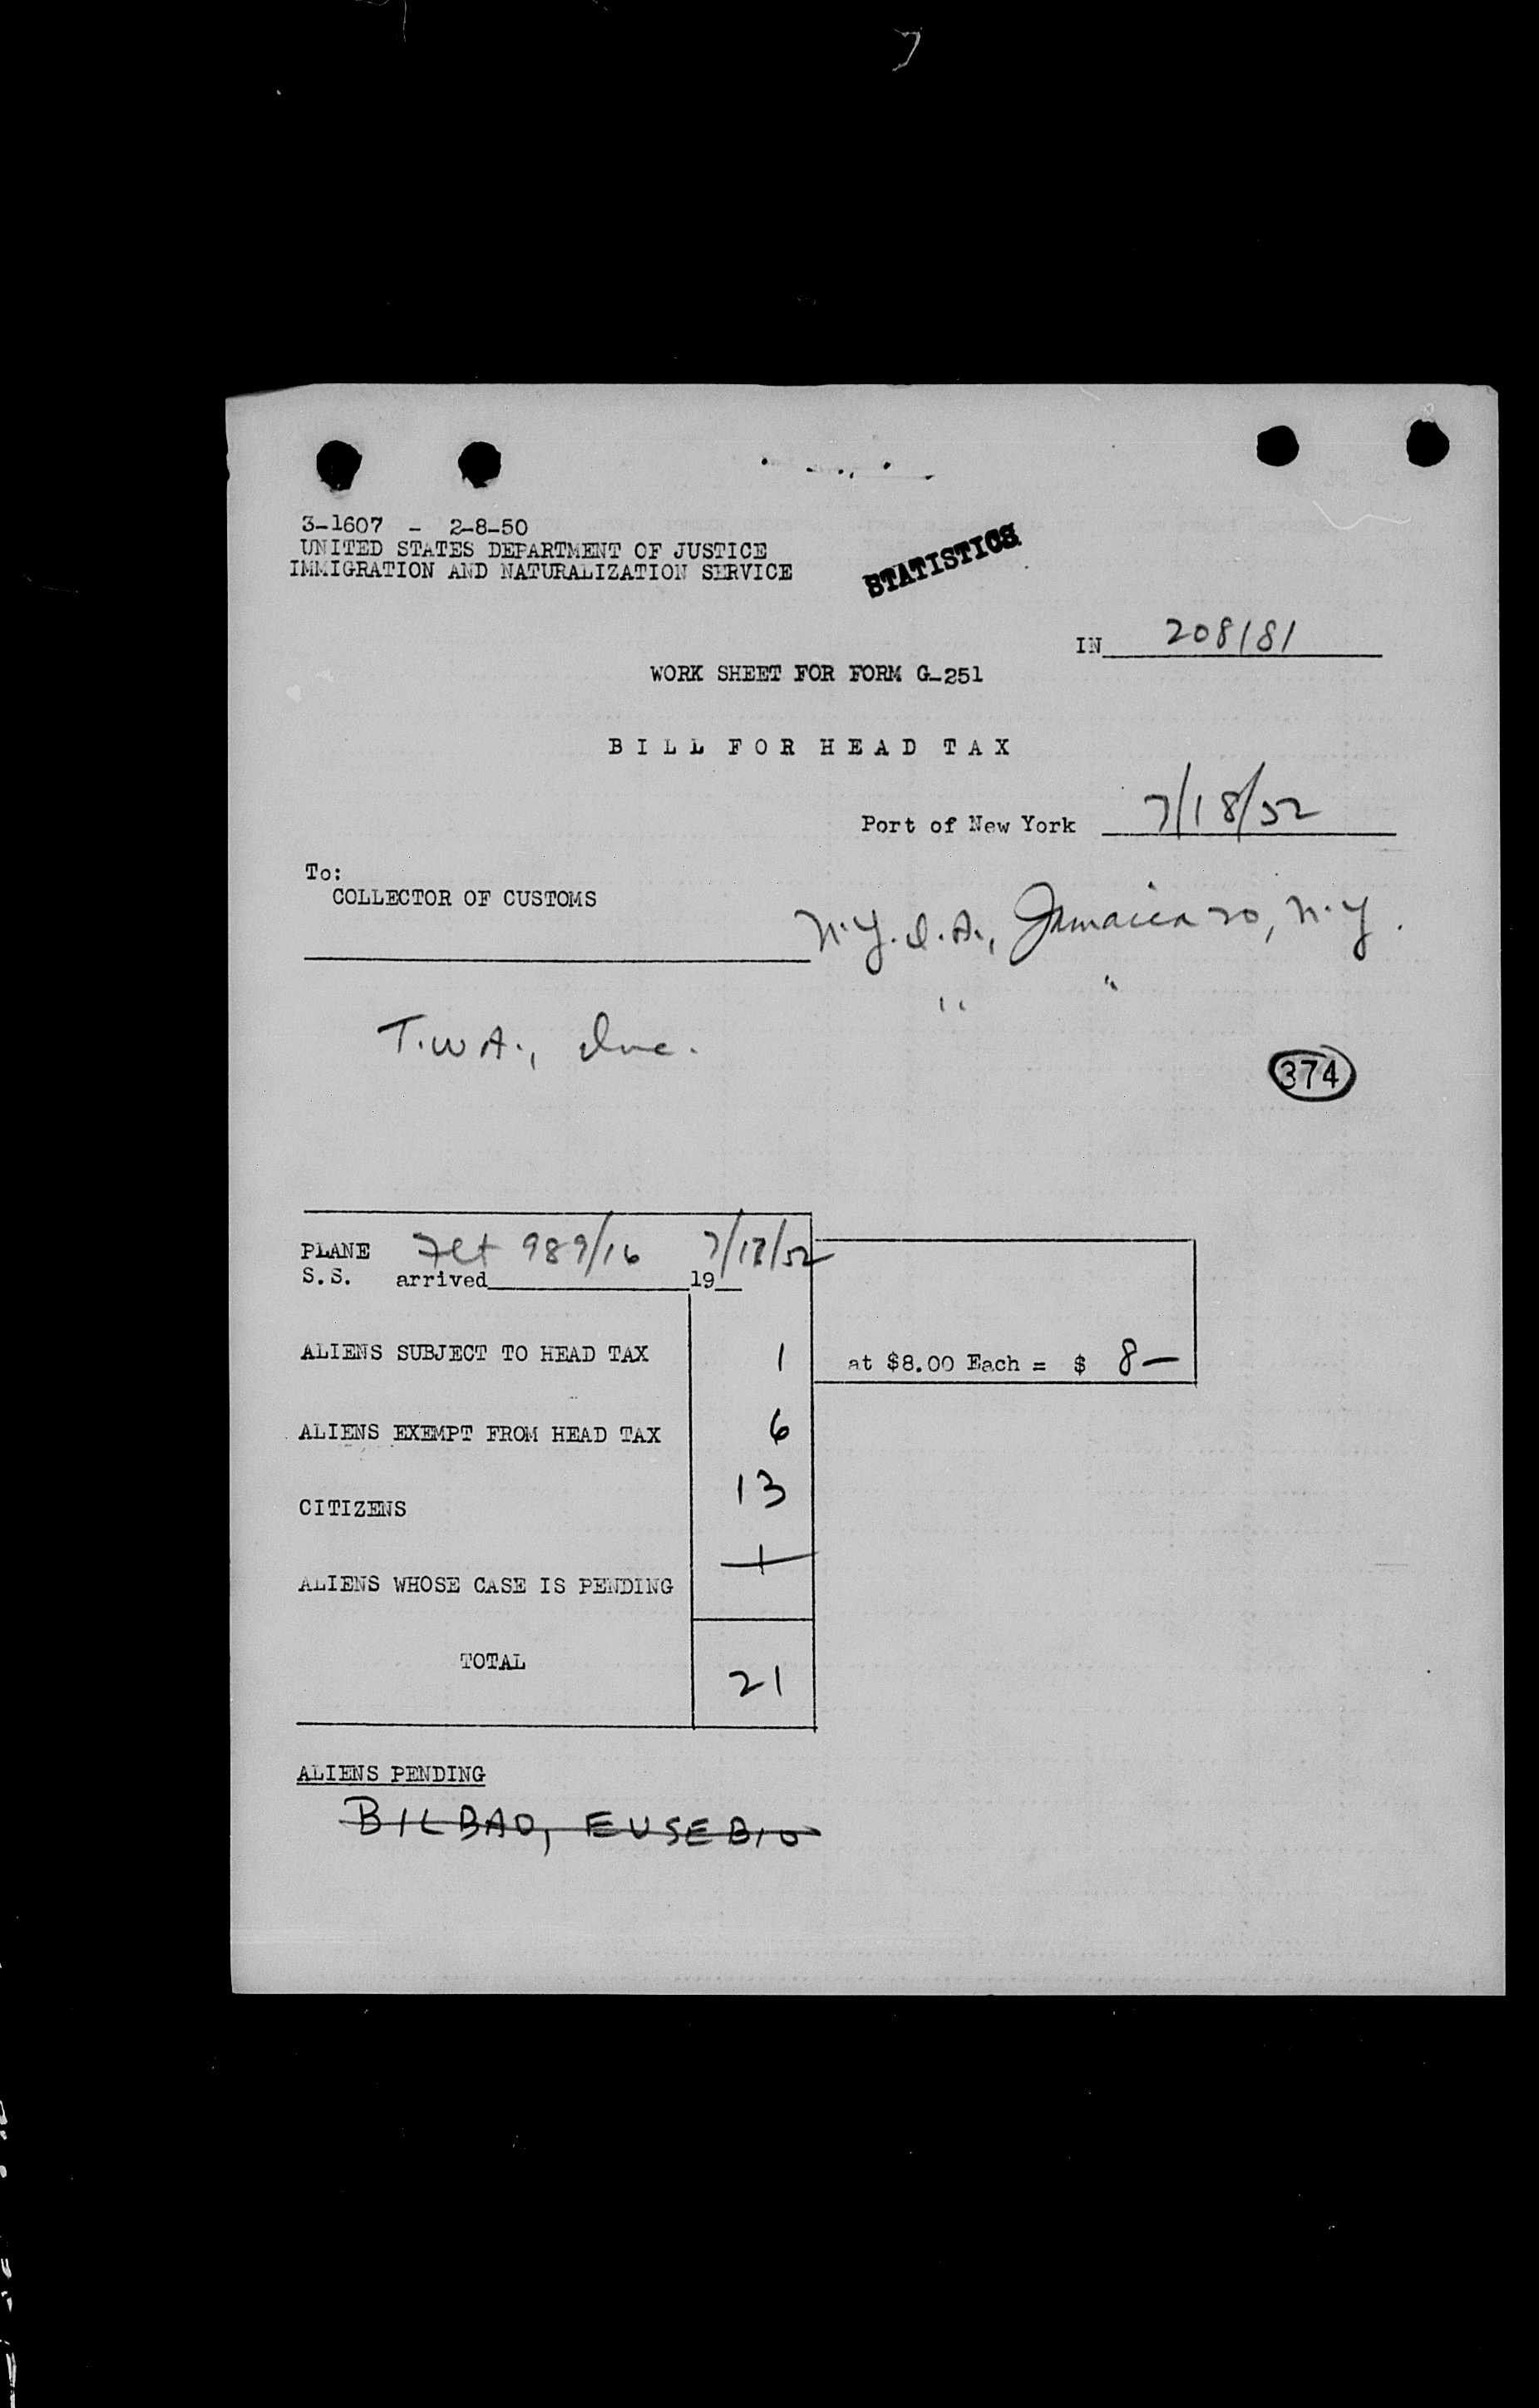 3-1607 - 2-8-50
UNITED STATES DEPARTMENT OF JUSTICE
IMMIGRATION AND NATURALIZATION SERVICE
STATISTICS
IN 208181
WORK SHEET FOR FORM G-251
BILL FOR HEAD TAX
Port of New York 7/18/52
To:
COLLECTOR OF CUSTOMS
N.Y.I.A., Jamaica 20, N.Y.
" "
T.W.A., Inc.
374
PLANE Flt 989/16 7/17/52
S.S. arrived 19
ALIENS SUBJECT TO HEAD TAX 1 at $8.00 Each = $ 8—
ALIENS EXEMPT FROM HEAD TAX 6
CITIZENS 13
ALIENS WHOSE CASE IS PENDING 1
TOTAL 21
ALIENS PENDING
BILBAO, EUSEBIO